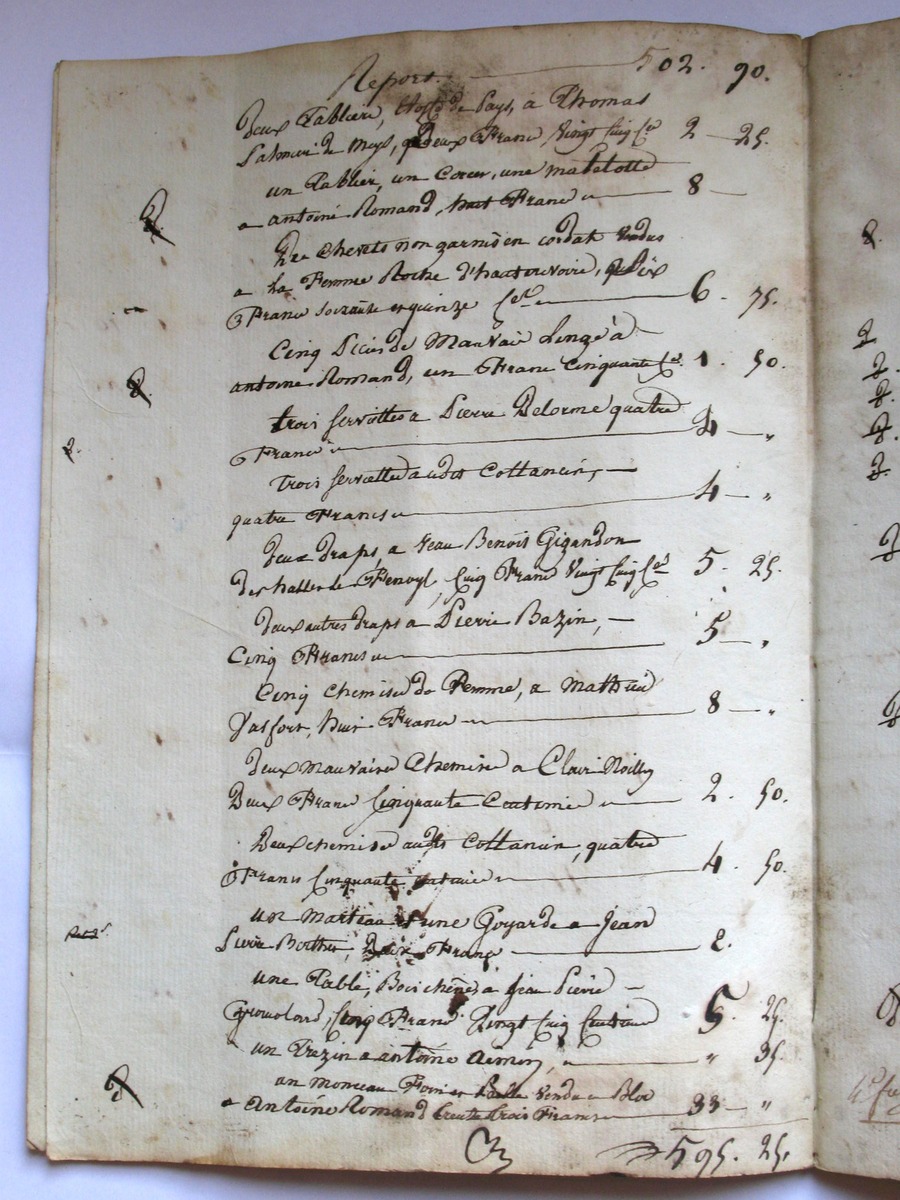 Report 502. 90.
deux Tabliers, étoffe de Pays, a Thomas
de Meys, deux Franc, vingt cinq ce 2 25.
un Tablier, un Corcet, une matelotte
a antoine Romand, huit Franc 8
Des Chevets non garnis en
a La Femme Roche d'hauterivoire, Six
Francs soixante et quinze ces 6. 75.
Cinq Pieces de Mauvais Linge à
antoine Romand, un Franc Cinquante ce. 1. 50.
trois serviettes a Pierre Delorme quatre
Francs 4 "
Trois serviettes audit Cottancin,
quatre Francs 4 "
deux draps, a Jean Benois Gigandon
des halles de Fenoyl, Cinq Franc Vingt Cinq Ces 5. 25.
deux autres draps a Pierre Bazin,
Cinq Francs 5 "
Cinq chemises de Femme, a Mathieu
Jasfort, huit Francs 8 "
deux mauvaise Chemise a Clair Noilly
Deux Franc Cinquante Centimes 2. 50.
Deux chemises audit Cottancin, quatre
Francs Cinquante Centimes 4. 50.
un marteau et une Goyarde a Jean
Pierre Berthet, Deux Francs 2.
une Table, Bois chêne, a Jean Pierre
Cinq Franc Vingt Cinq Centimes 5. 25.
un a antoine " 35.
un monceau Foin et Paille vendu en Bloc
a Antoine Romand trente trois Francs 33 "
595. 25.